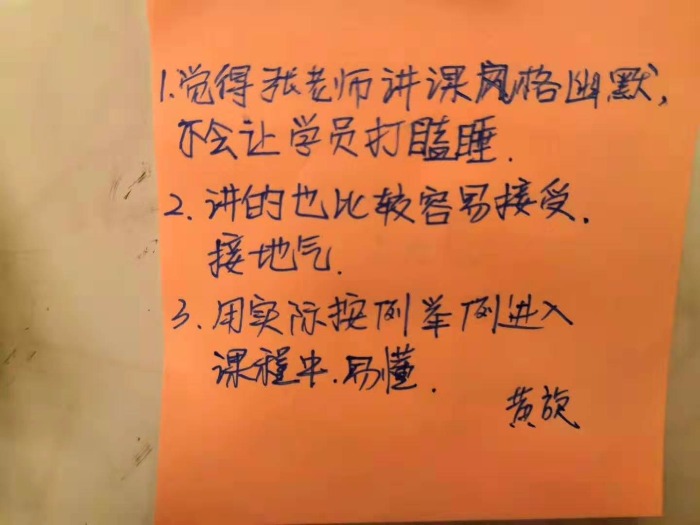 1.觉得张老师讲课风格幽默,
不会让学员打瞌睡.
2.讲的也比较容易接受.
接地气.
3.用实际按例举例进入
课程中.易懂.
黄旋